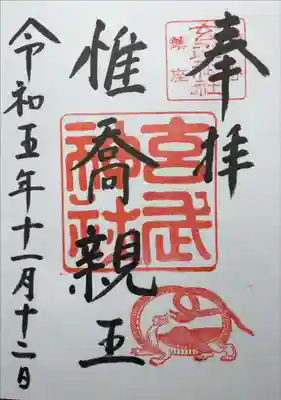 奉拝
惟喬親王
令和五年十一月十二日
玄武神社
玄武神社
鎮座